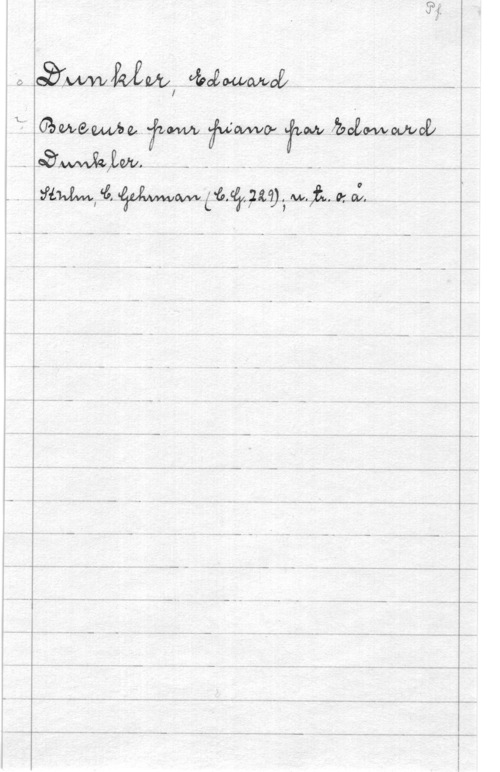 Pf.
Dunkler, Edouard
Berceuse pour piano par Edouard
Dunkler.
Sthlm, C. Gehrman (C.G. 729); u. tr. o. å.